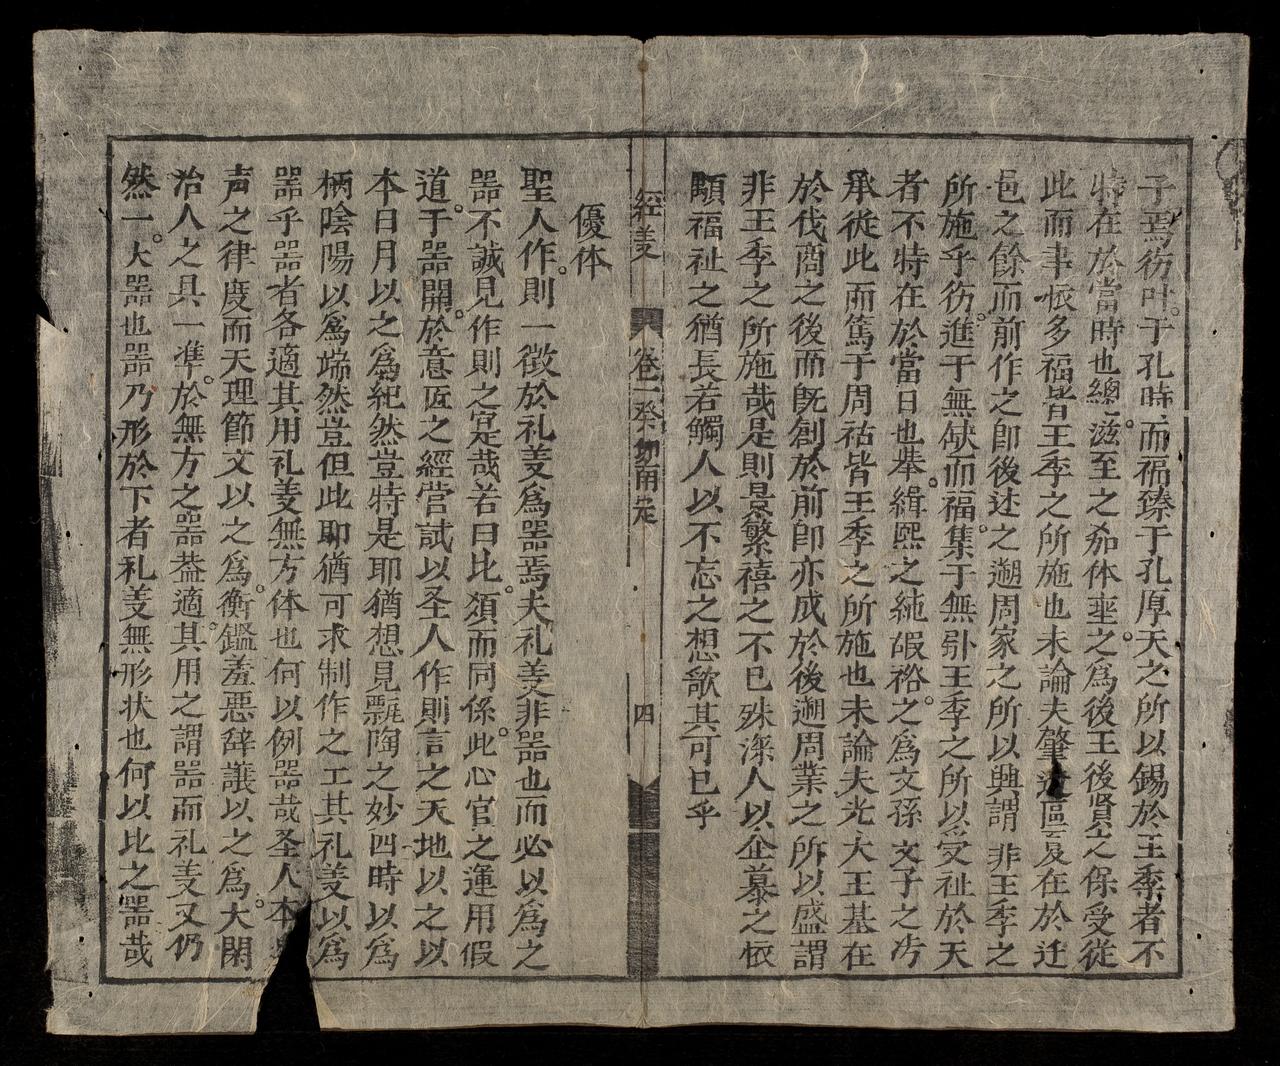 子焉彷叶于孔時而福臻于孔厚天之所以錫於王季者不
特在於當時也總滋至之加体埀之為後王後賢之保受從
此而事恢多福皆王季之所施也未論夫肇造區夏在於迁
邑之餘而前作之卽後述之遡周家之所以興謂非王季之
所施乎彷進于無缺而福集于無𢎞王季之所以受祉於天
者不特在於當日也牽緝熙之純嘏裕之為文孫文子之
承從此而篤于周祜皆王季之所施也未論夫光大王基在
於伐商之後而旣創於前卽亦成於後遡周業之所以盛謂
非王季之所施哉是則景繁禧之不已殊深人以企慕之
顒福祉之猶長若觸人以不忘之想歌其可已乎
經義 卷一 四
優体
聖人作則一徵於礼义爲器焉夫礼义非器也而必以爲之
器不誠見作則之寔哉若曰比須而同係此心官之運用假
道于器開於意匠之經営試以圣人作則言之天地以之以
本日月以之爲紀然豈特是耶猶想見甄陶之妙四時以爲
柄陰陽以爲端然豈但此耶猶可求制作之工其礼义以爲
器乎器者各適其用礼义無方体也何以例器哉圣人本
声之律度而天理節文以之爲衡鑑羞惡辞讓以之爲大閑
治人之具一準於無方之器盖適其用之謂器而礼义又仍
然一大器也器乃形於下者礼义無形状也何以比之器哉